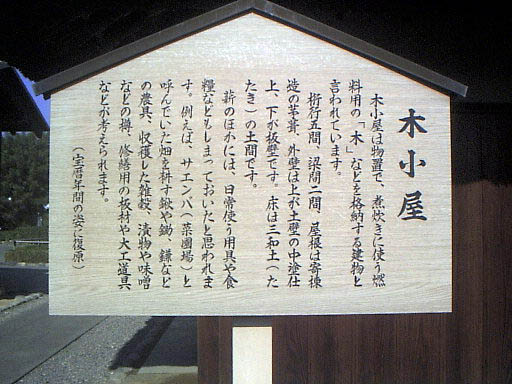 木小屋
木小屋は物置で、煮炊きに使う燃
料用の「木」などを格納する建物と
言われています。
桁行五間、梁間二間、屋根は寄棟
造の茅葺、外壁は上が土壁の中塗仕
上、下が板壁です。床は三和土（た
たき）の土間です。
薪のほかには、日常使う用具や食
糧などもしまっておいたと思われま
す。例えば、サエンバ（菜園場）と
呼んでいた畑を耕す鍬や鋤、鎌など
の農具、収穫した雑穀、漬物や味噌
などの樽、修繕用の板材や大工道具
などが考えられます。
（宝暦年間の姿に復原）